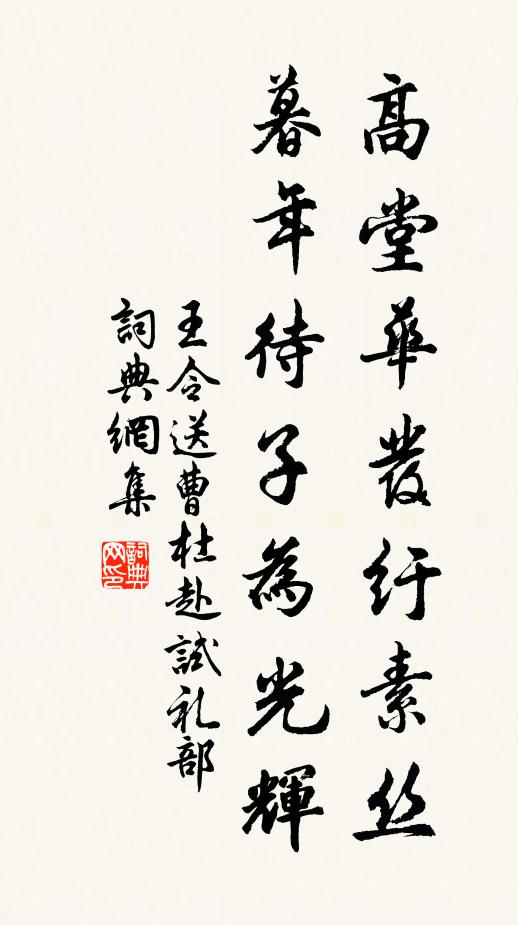 高堂華髮紆素丝
暮年待子為光輝
王令送曹杜赴試礼部
詞典網集
詞典网印